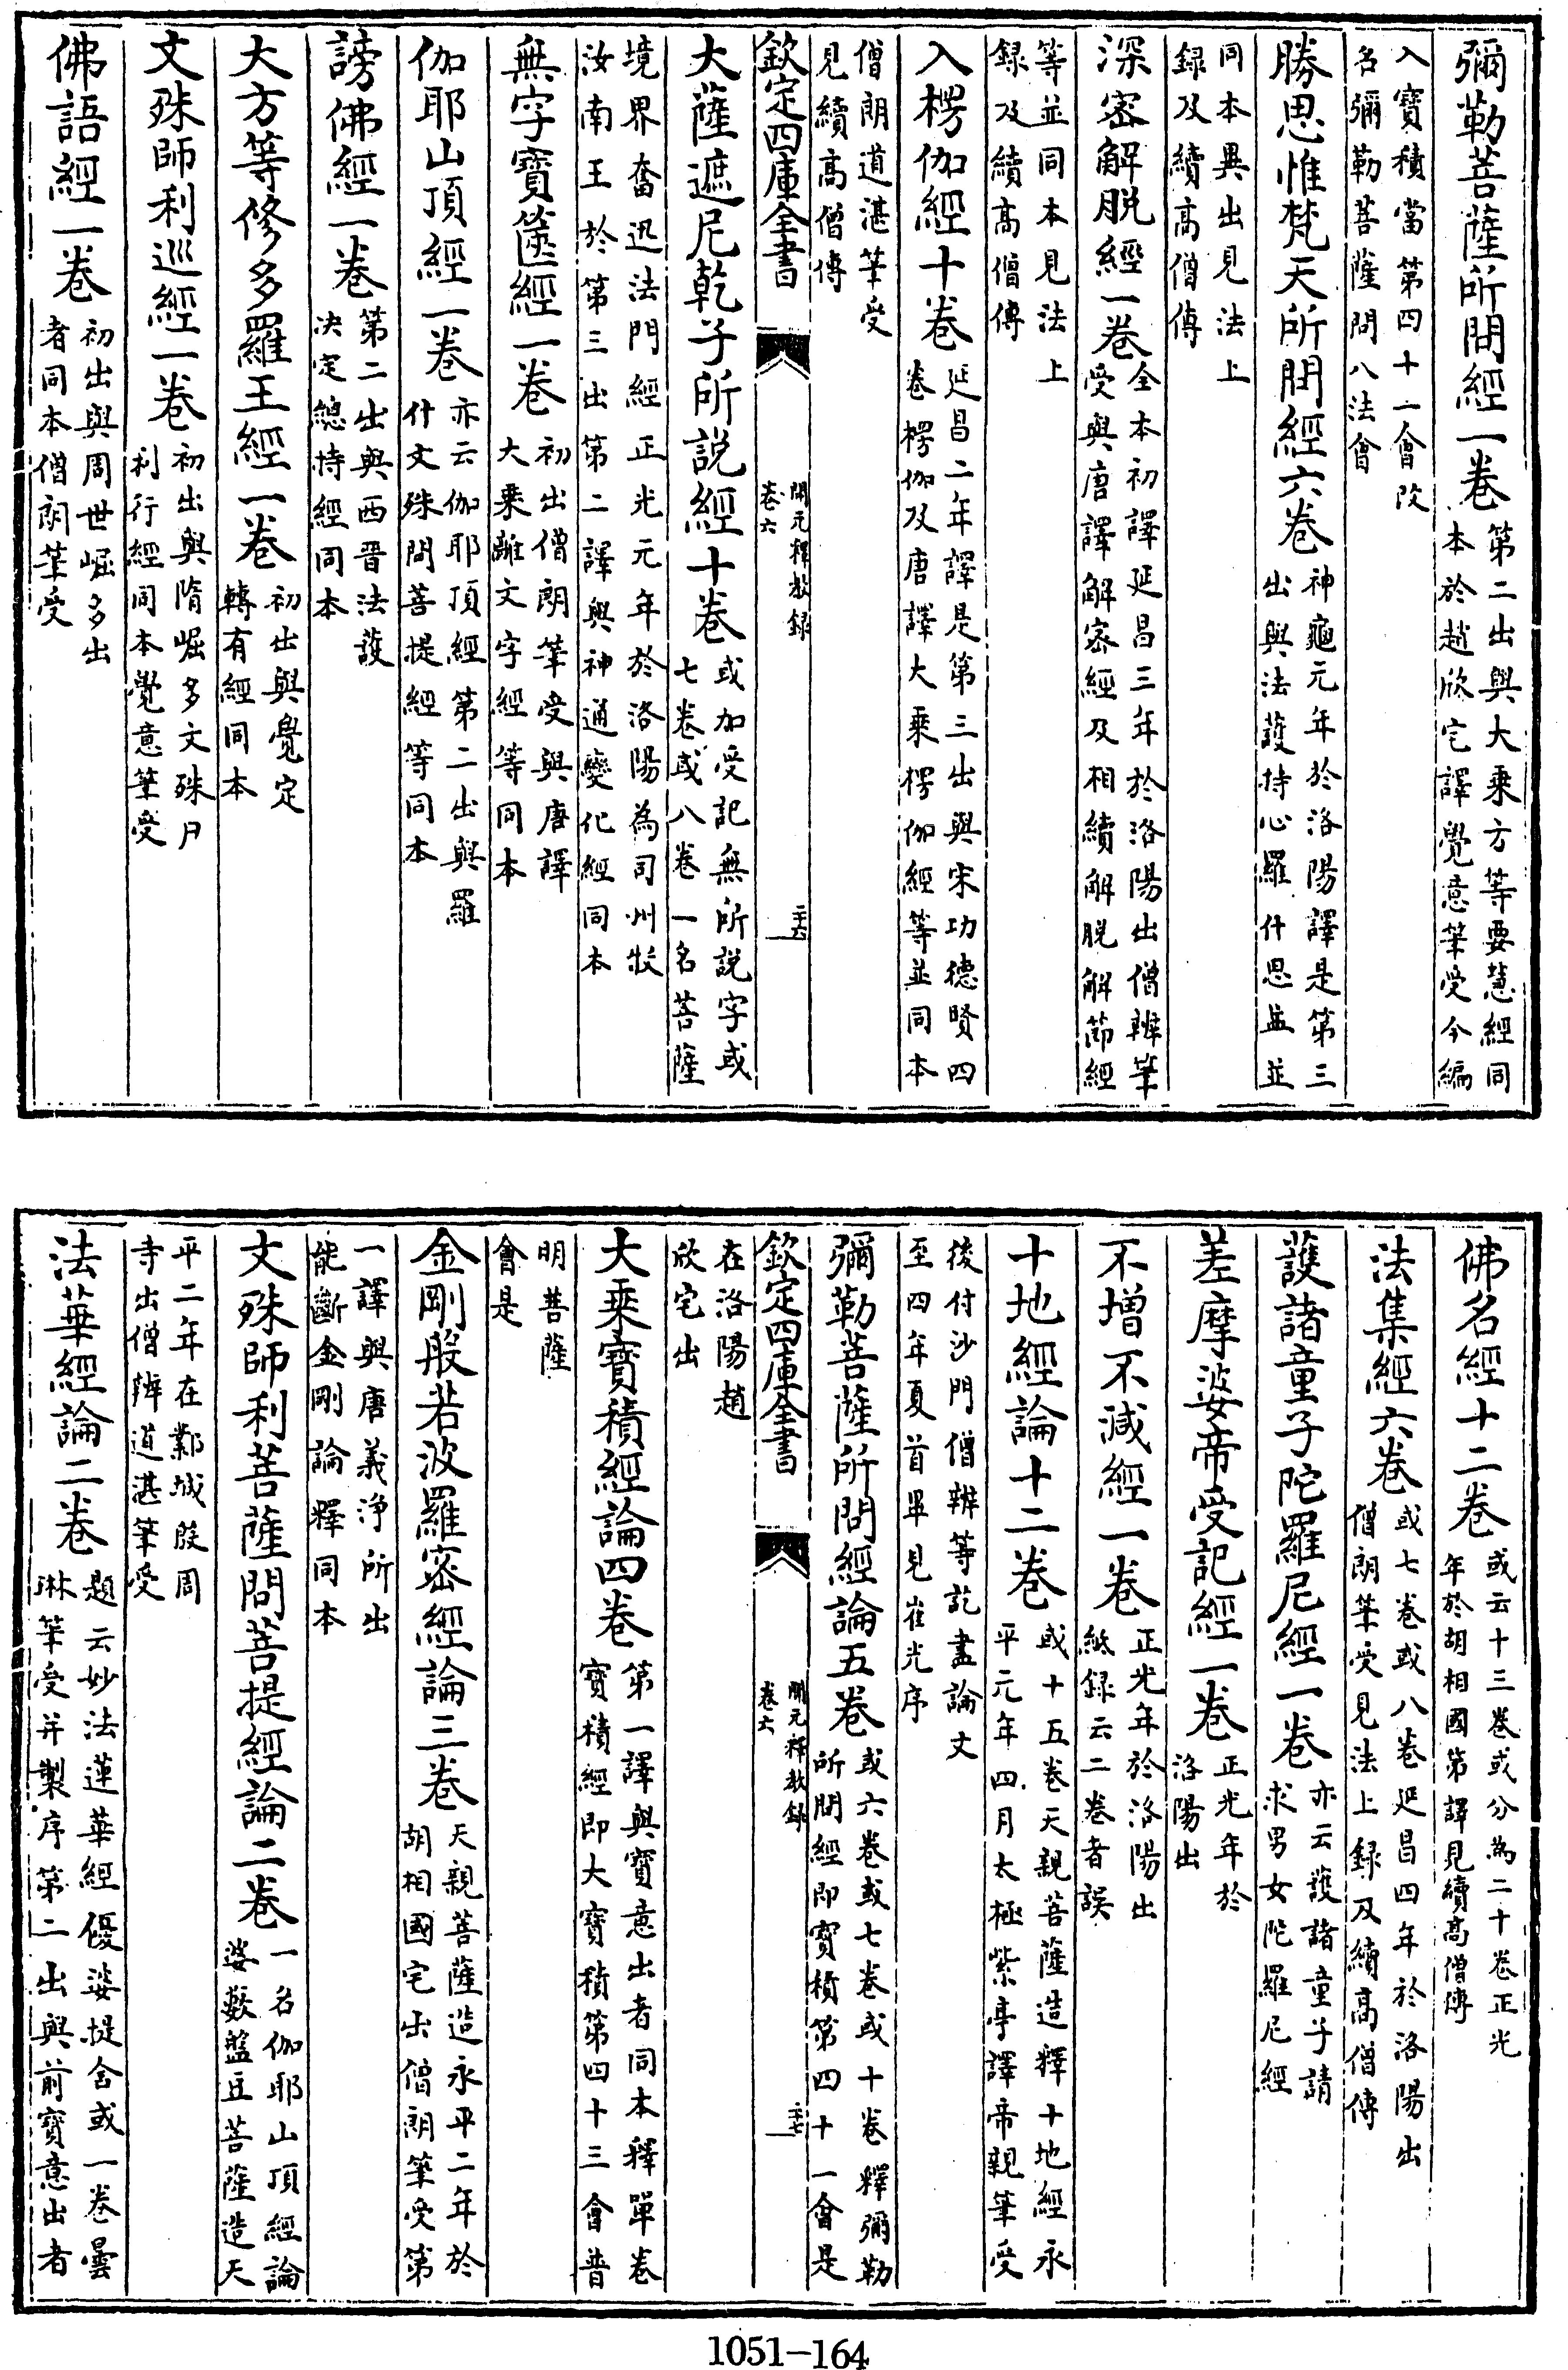 彌勒菩薩所問經一卷第二出與大乘方等要慧經同本於趙欣宅譯覺意筆受今編
入寶積當第四十一會改名彌勒菩薩問八法會
勝思惟梵天所問經六卷神龜元年於洛陽譯是第三出與法護持心羅什思益並
同本異出見法上録及續高僧傳
深密解脱經一卷全本初譯延昌三年於洛陽出僧辨筆受與唐譯解密經及相續解脱解節經
等並同本見法上録及續高僧傳
入楞伽經十卷延昌二年譯是第三出與宋功德賢四卷楞伽及唐譯大乘楞伽經等並同本
僧朗道湛筆受見續高僧傳
欽定四庫全書 開元釋教録卷六 二十六
大薩遮尼乾子所説經十卷或加受記無所説字或七卷或八卷一名菩薩
境界奮迅法門經正光元年於洛陽為司州牧汝南王於第三出第二譯與神通變化經同本
無字寶篋經一卷初出僧朗筆受與唐譯大乘離文字經等同本
伽耶山頂經一卷亦云伽耶頂經第二出與羅什文殊問菩提經等同本
謗佛經一卷第二出與西晋法護決定總持經同本
大方等修多羅王經一卷初出與覺定轉有經同本
文殊師利巡經一卷初出與隋崛多文殊尸利行經同本覺意筆受
佛語經一卷初出與周世崛多出者同本僧朗筆受
佛名經十二卷或云十三卷或分為二十卷正光年於胡相國第譯見續高僧傳
法集經六卷或七卷或八卷延昌四年於洛陽出僧朗筆受見法上録及續高僧傳
護諸童子陀羅尼經一卷亦云護諸童子請求男女陀羅尼經
差摩婆帝受記經一卷正光年於洛陽出
不增不減經一卷正光年於洛陽出紙録云二卷者誤
十地經論十二卷或十五卷天親菩薩造釋十地經永平元年四月太極紫亭譯帝親筆受
後付沙門僧辨等訖盡論文至四年夏首畢見崔光序
彌勒菩薩所問經論五卷或六卷或七卷或十卷釋彌勒所問經即寶積第四十一會是
欽定四庫全書 開元釋教録卷六 二十七
在洛陽趙欣宅出
大乘寶積經論四卷第一譯與寶意出者同本釋單卷寶積經即大寶積第四十三會普
明菩薩會是
金剛般若波羅密經論三卷天親菩薩造永平二年於胡相國宅出僧朗筆受第
一譯與唐義淨所出能斷金剛論釋同本
文殊師利菩薩問菩提經論二卷一名伽耶山頂經論婆藪盤豆菩薩造天
平二年在鄴城殷周寺出僧辨道湛筆受
法華經論二卷題云妙法蓮華經優婆提舍或一卷曇琳筆受并製序第二出與前寶意出者
1051-164